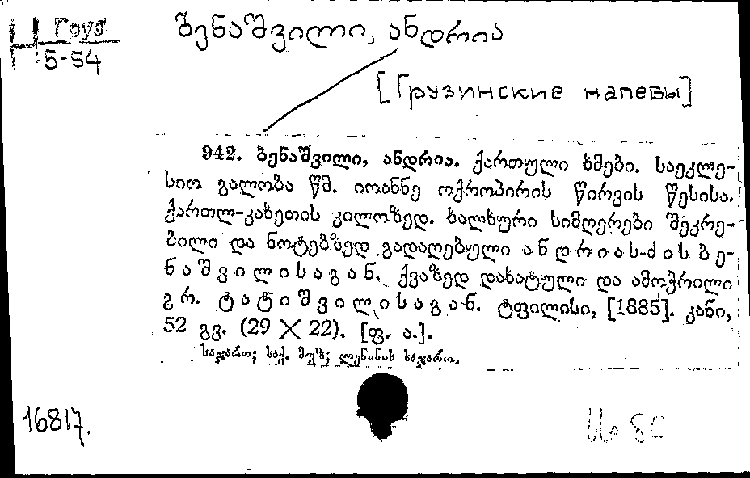 Н Груз
5-54
ბენაშვილი, ანდრია
[Грузинские напевы]
942. ბენაშვილი, ანდრია. ქართული ხმები. საეკლე-
სიო გალობა წმ. იოანნე ოქროპირის წირვის წესისა.
ქართლ-კახეთის კილოზედ. ხალხური სიმღერები შეკრე-
ბილი და ნოტებზედ გადაღებული ანდრიას-ძის ბე-
ნაშვილისაგან. ქვაზედ დახატული და ამოჭრილი
გრ. ტატიშვილისაგან. ტფილისი, [1885]. კანი,
52 გვ. (29 X 22). [ფ. ა.].
საქ. მუზ; ლენინის
16817.